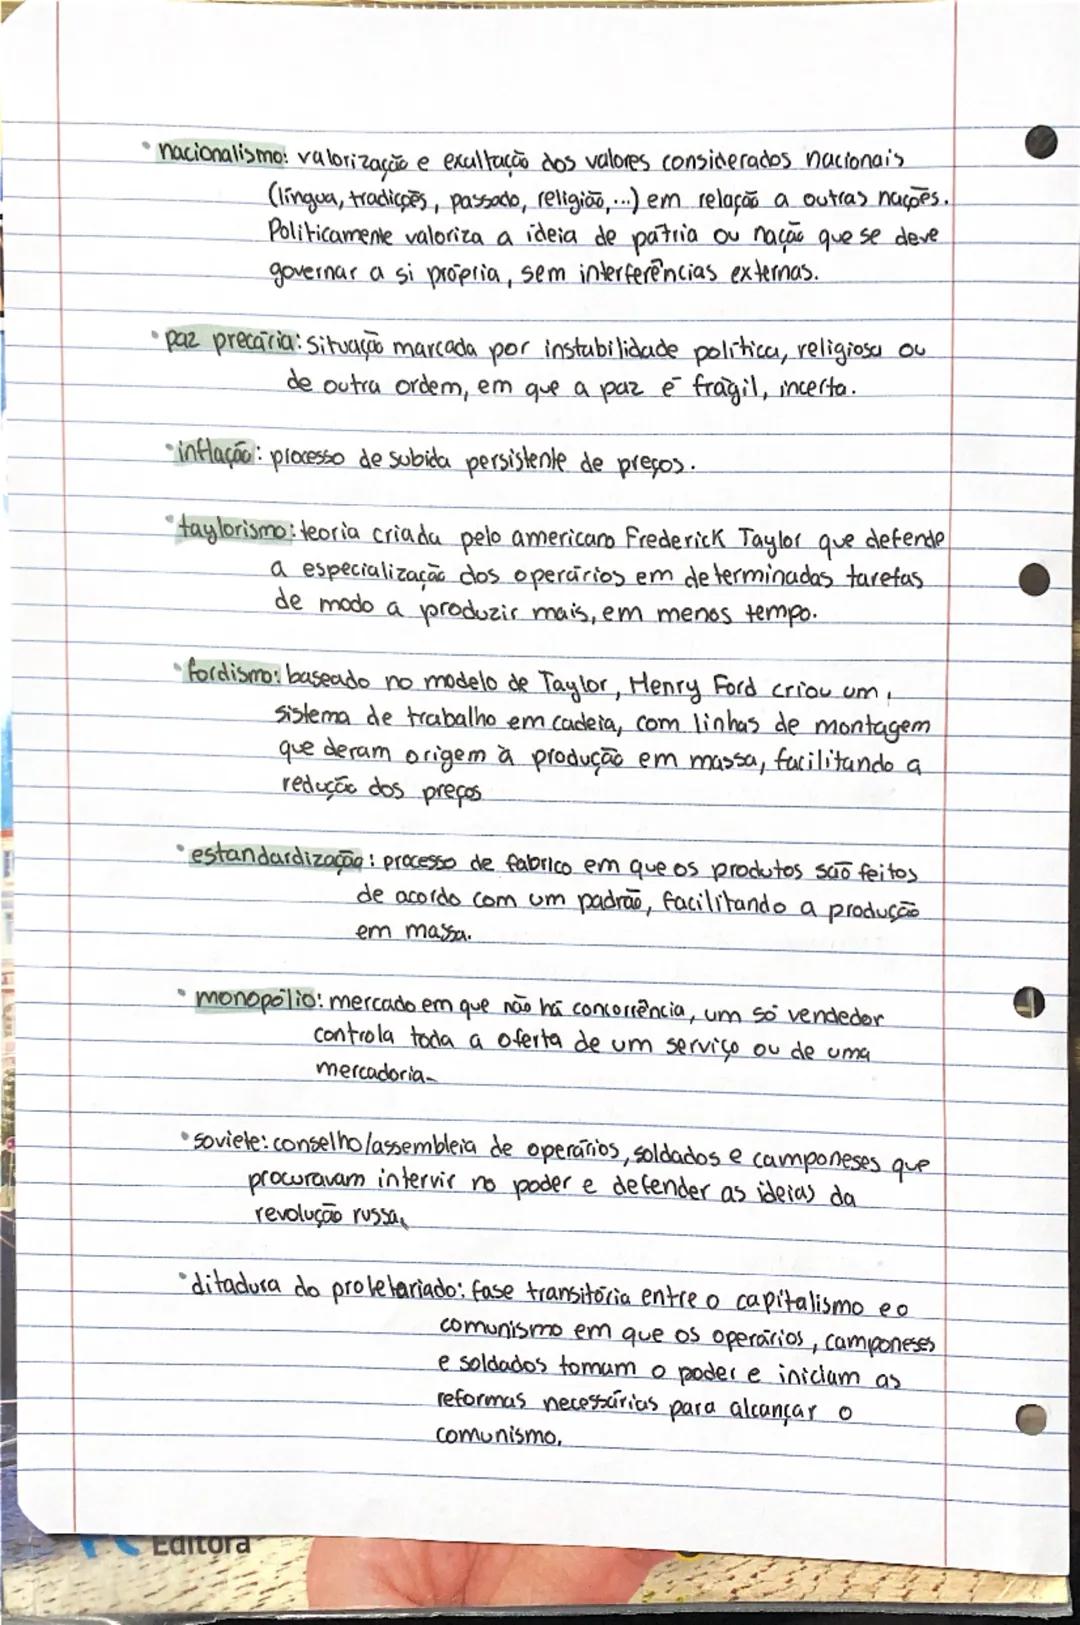 • nacionalismo: valorização e exultação dos valores considerados nacionais
(língua, tradições, passado, religião,...) em relação a outras nações.
Politicamente valoriza a ideia de pátria ou nação que se deve
governar a si própria, sem interferências externas.
• paz precária: situação marcada por instabilidade política, religiosa ou
de outra ordem, em que a paz é frágil, incerta.
• inflação: processo de subida persistente de preços.
• taylorismo: teoria criada pelo americano Frederick Taylor que defende
a especialização dos operários em determinadas tarefas
de modo a produzir mais, em menos tempo.
• fordismo: baseado no modelo de Taylor, Henry Ford criou um
sistema de trabalho em cadeia, com linhas de montagem
que deram origem à produção em massa, facilitando a
redução dos preços
• estandardização: processo de fabrico em que os produtos são feitos
de acordo com um padrão, facilitando a produção
em massa.
• monopólio: mercado em que não há concorrência, um só vendedor
controla toda a oferta de um serviço ou de uma
mercadoria.
• soviete: conselho/assembleia de operários, soldados e camponeses que
procuravam intervir no poder e defender as ideias da
revolução russa.
• ditadura do proletariado: fase transitória entre o capitalismo e o
comunismo em que os operários, camponeses
e soldados tomam o poder e iniciam as
reformas necessárias para alcançar o
comunismo.
Editora